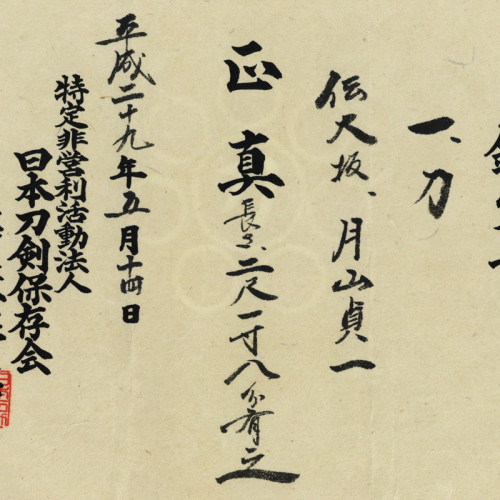 一、刀
伝大坂、月山貞一
正真
長さ、二尺一寸八分有之
平成二十九年五月十四日
特定非営利活動法人
日本刀剣保存会